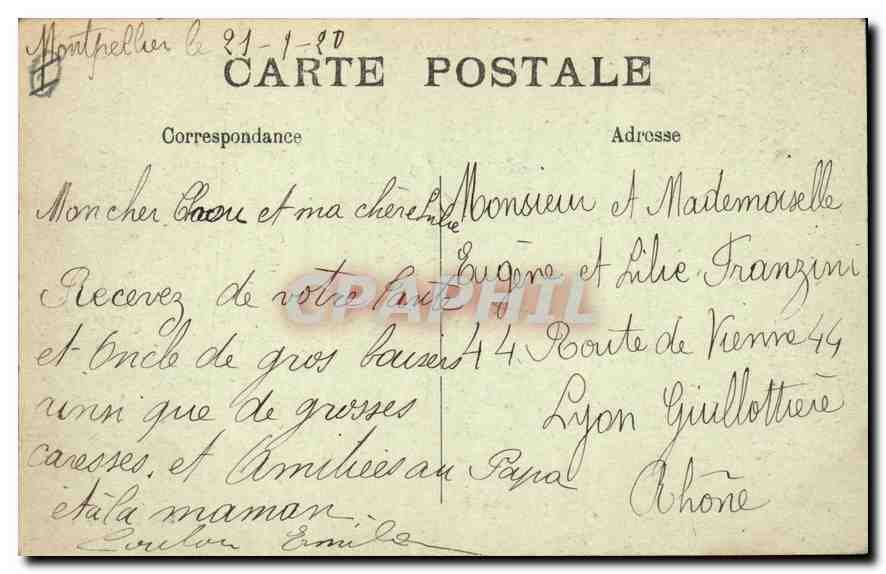 Montpellier le 21-1-20
CARTE POSTALE
Correspondance
Mon cher Chou et ma chère Lilie
Recevez de votre Tante
et Oncle de gros baisers
ainsi que de grosses
caresses. et Amitiées au Papa
et à la maman.
Coulon Emile
Adresse
Monsieur et Mademoiselle
Eugène et Lilie Franzini
44 Route de Vienne 44
Lyon Guillottière
Rhône
CPAPHIL